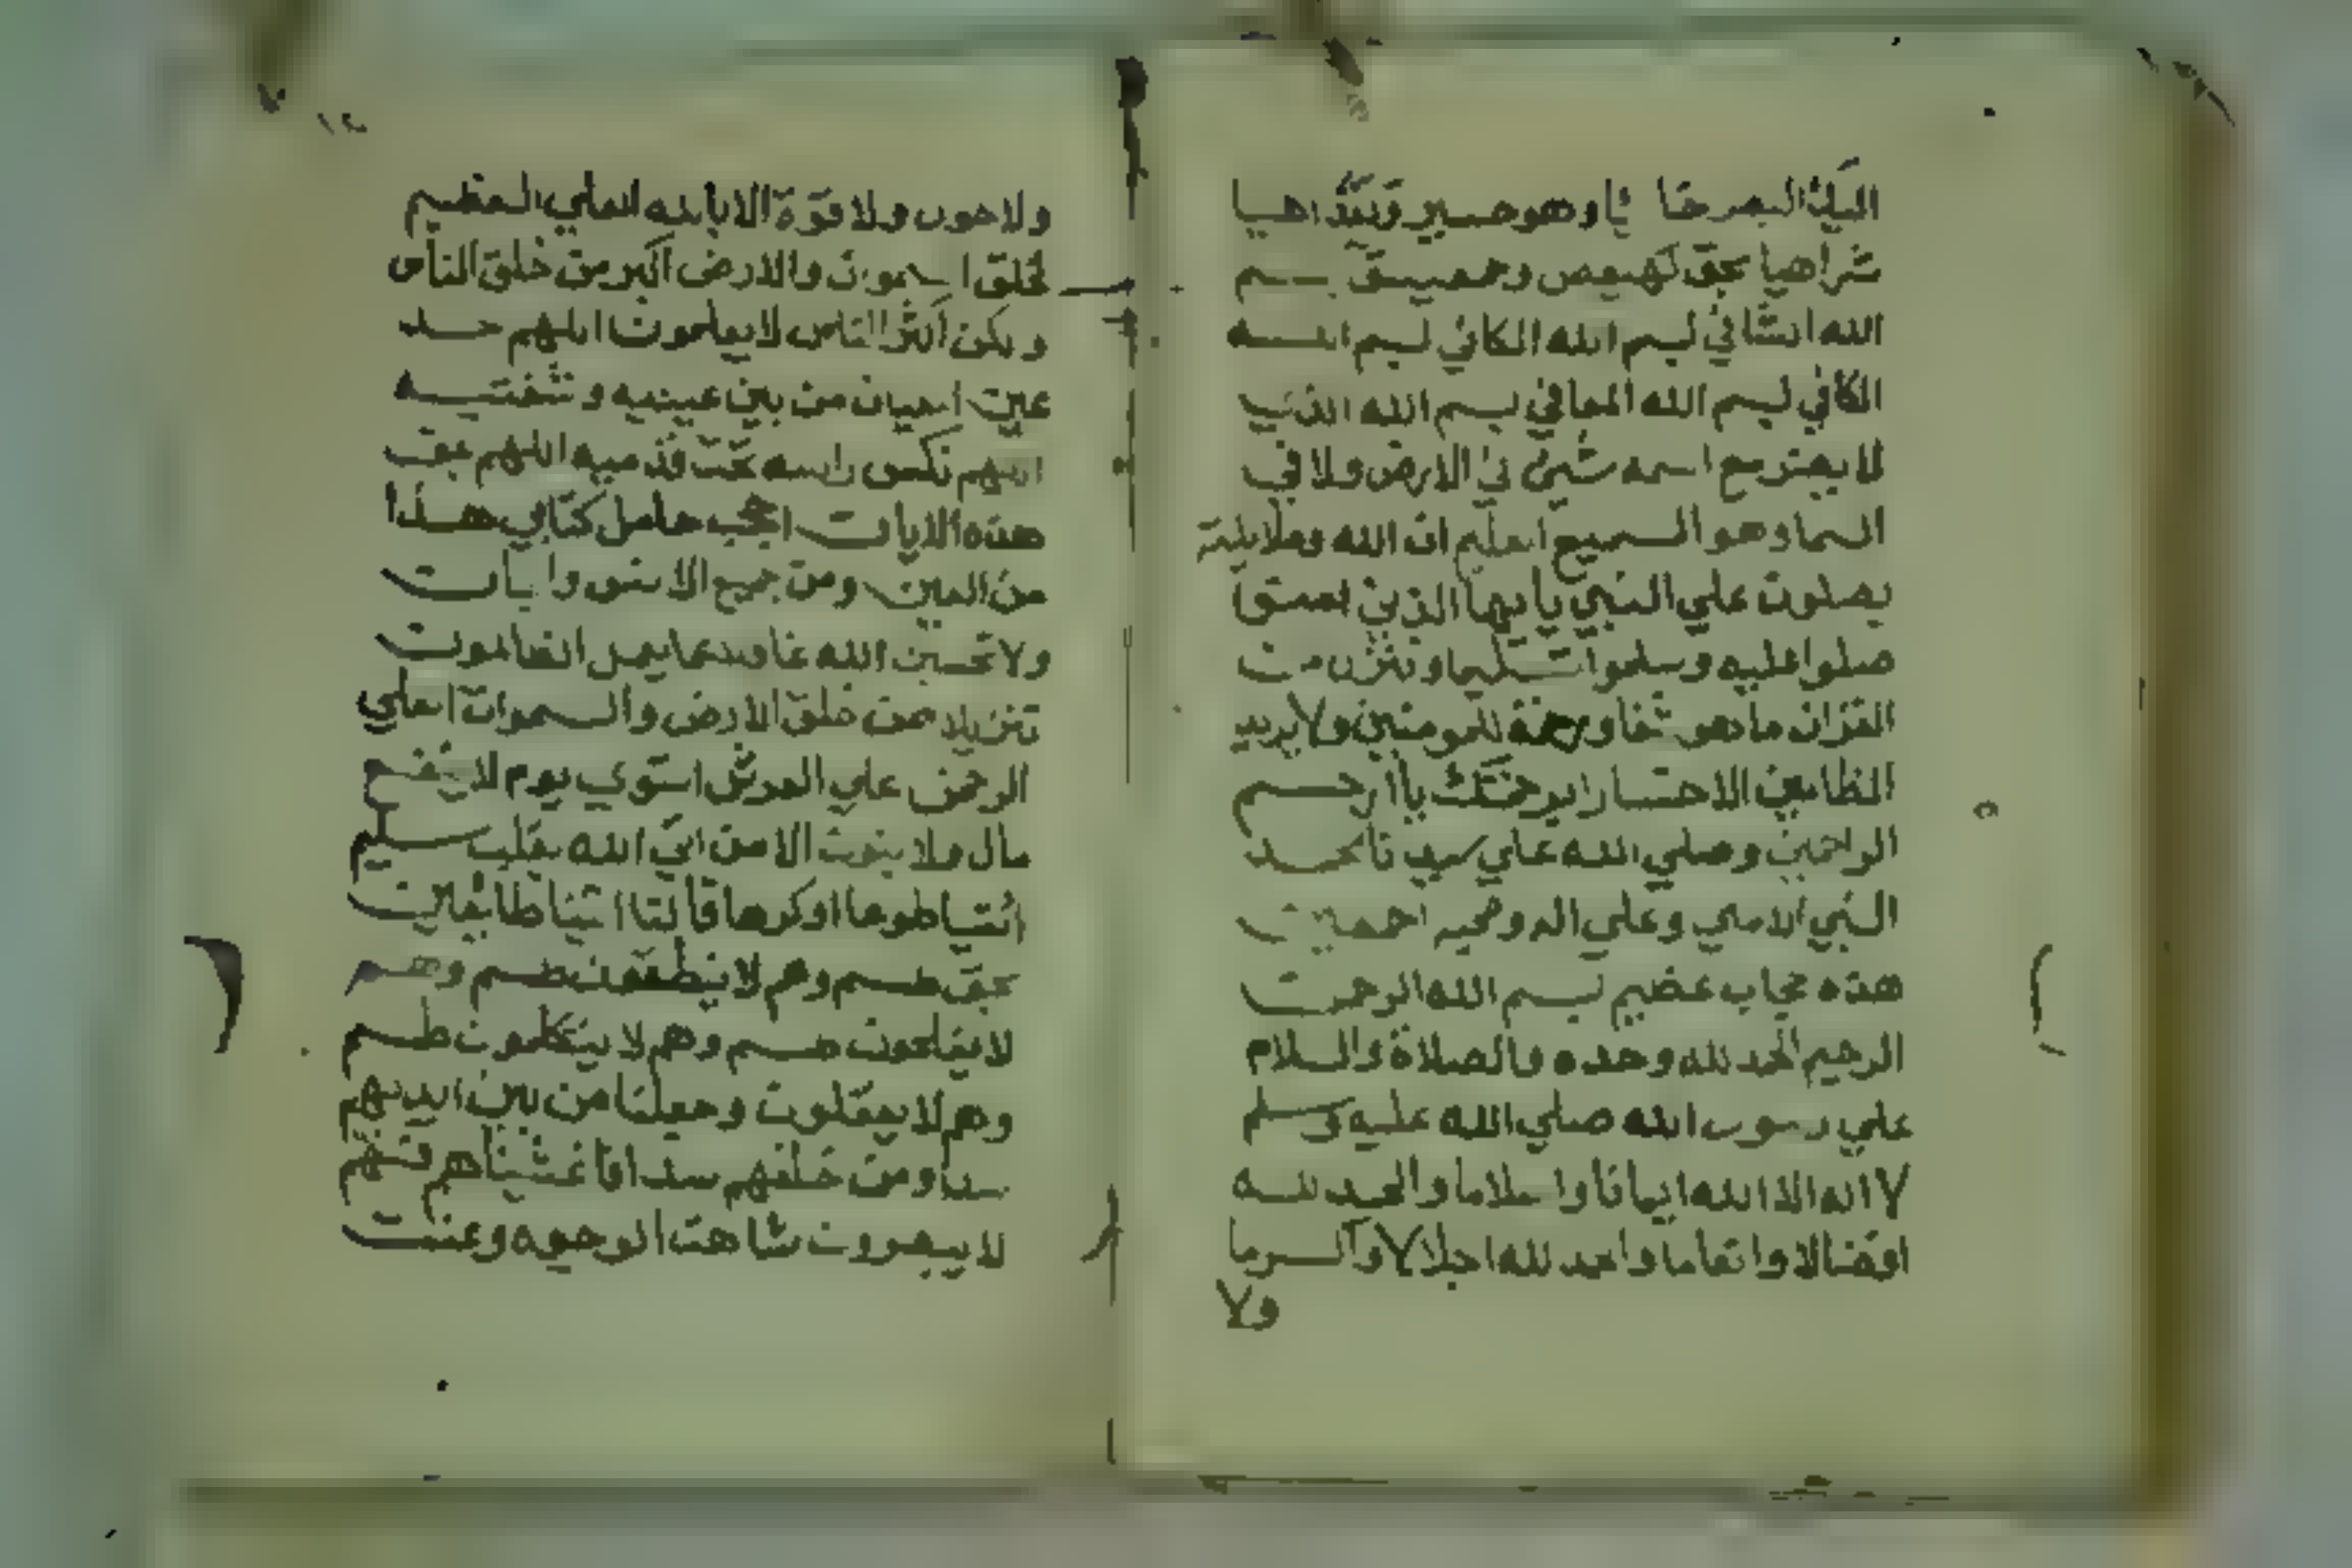 اليك البصر خا وهو حسير وبعد اهيا
شراهيا بحق كهيعص وحمعسق بسم
الله الشافي بسم الله الكافي بسم الله
الكافي بسم الله المعافي بسم الله الذي
لا يضر مع اسمه شيئ في الارض ولا في
السما وهو السميع العليم ان الله وملايكته
يصلون علي النبي يا ايها الذين امنوا
صلوا عليه وسلموا تسليما وننزل من
القران ما هو شفا ورحمة للمومنين ولا يزيد
الظالمين الاخسارا برحمتك يا ارحم
الراحمين وصلي الله علي سيدنا محمد
النبي الامي وعلي اله وصحبه اجمعين
هذه حجاب عضيم بسم الله الرحمن
الرحيم الحمد لله وحده والصلاة والسلام
علي رسول الله صلي الله عليه وسلم
لا اله الا الله ايمانا واسلاما والحمد لله
افضالا وانعاما والحمد لله اجلالا واكـراما
ولا
ولا حول ولا قوة الا بالله العلي العظيم
لخلق السموات والارض اكبر من خلق الناس
ولكن اكثر الناس لا يعلمون اللهم خلد
عين من بين عينيه وشفتيه
اللهم نكس راسه تحت قدميه اللهم بحق
هذه الايات احجب حامل كتابي هذا
من العين ومن جميع الا
ولا تحسبن الله غافلا عما يعمل الضالمون
تنزيلا ممن خلق الارض والسموات العلي
الرحمن علي العرش استوي يوم لا ينفع
مال ولا بنون الا من اتي الله بقلب سليم
ائتيا طوعا او كرها قالتا اتينا طائعين
بحق طسم وهم لا ينطقون طسم وهم
لا طسم وهم لا يتكلمون طسم
وهم لا يعقلون وجعلنا من بين ايديهم
سدا ومن خلفهم سدا فاغشيناهم فهم
لا يبصرون شاهت الوجوه وعنت